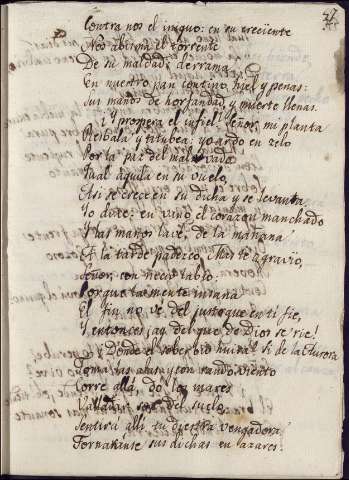 27
Contra nos el iniquo: en su creciente
Nos abisma el torrente
De su maldad: derrama
En nuestro pan contino hiel, y penas:
Sus manos de horfandad, y muerte llenas.
¡Y prospera el infiel! Señor, mi planta
Resbala y titubea: quando en zelo
Por la paz del malvado
Qual aguila en su vuelo,
Asi se crece en su dicha y se levanta,
Yo dixe: en vano el corazon manchado
Mas manos lave, de la mañana
A la tarde padezco. Mas te agravio,
Señor, con necio labio,
Porque la mente insana
El fin no ve del justo que en ti fie,
Y entonces ¡ay del que de Dios se rie!
¿Y Donde el soberbio huira? Si de la Aurora
Toma las alas, y con raudo viento
Corre allá, do los mares
del suelo,
Sentirá allí tu diestra vengadora
Tornaranse sus dichas en azares.